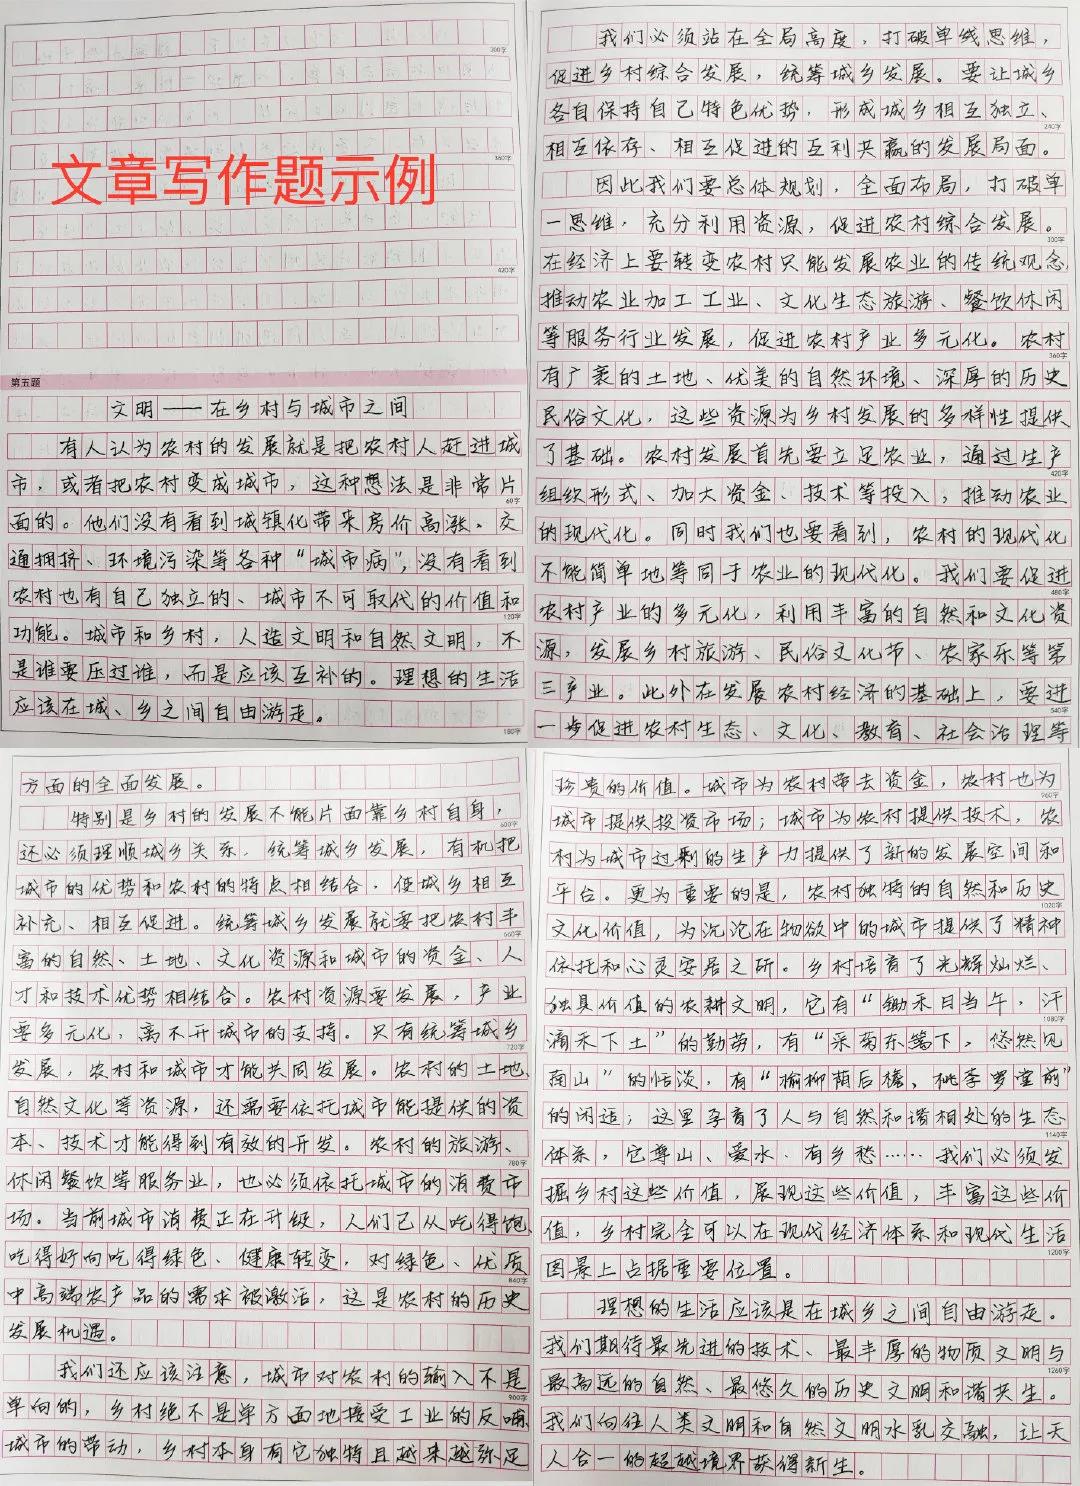 300字
360字
文章写作题示例
420字
第五题
文明——在乡村与城市之间
有人认为农村的发展就是把农村人赶进城
市，或者把农村变成城市，这种想法是非常片
60字
面的。他们没有看到城镇化带来房价高涨、交
通拥挤、环境污染等各种“城市病”，没有看到
农村也有自己独立的、城市不可取代的价值和
120字
功能。城市和乡村，人造文明和自然文明，不
是谁要压过谁，而是应该互补的。理想的生活
应该在城、乡之间自由游走。
180字
我们必须站在全局高度，打破单线思维，
促进乡村综合发展，统筹城乡发展。要让城乡
各自保持自己特色优势，形成城乡相互独立、
240字
相互依存、相互促进的互利共赢的发展局面。
因此我们要总体规划，全面布局，打破单
一思维，充分利用资源，促进农村综合发展。
300字
在经济上要转变农村只能发展农业的传统观念，
推动农业加工工业、文化生态旅游、餐饮休闲
等服务行业发展，促进农村产业多元化。农村
360字
有广袤的土地、优美的自然环境、深厚的历史
民俗文化，这些资源为乡村发展的多样性提供
了基础。农村发展首先要立足农业，通过生产
420字
组织形式、加大资金、技术等投入；推动农业
的现代化。同时我们也要看到，农村的现代化
不能简单地等同于农业的现代化。我们要促进
480字
农村产业的多元化，利用丰富的自然和文化资
源，发展乡村旅游、民俗文化节、农家乐等第
三产业。此外在发展农村经济的基础上，要进
540字
一步促进农村生态、文化、教育、社会治理等
方面的全面发展。
特别是乡村的发展不能片面靠乡村自身，
600字
还必须理顺城乡关系，统筹城乡发展，有机把
城市的优势和农村的特点相结合，使城乡相互
补充、相互促进。统筹城乡发展就要把农村丰
660字
富的自然、土地、文化资源和城市的资金、人
才和技术优势相结合。农村资源要发展，产业
要多元化，离不开城市的支持。只有统筹城乡
720字
发展，农村和城市才能共同发展。农村的土地、
自然文化等资源，还需要依托城市能提供的资
本、技术才能得到有效的开发。农村的旅游、
780字
休闲餐饮等服务业，也必须依托城市的消费市
场。当前城市消费正在升级，人们已从吃得饱、
吃得好向吃得绿色、健康转变，对绿色、优质
840字
中高端农产品的需求被激活，这是农村的历史
发展机遇。
我们还应该注意，城市对农村的输入不是
900字
单向的，乡村绝不是单方面地接受工业的反哺、
城市的带动，乡村本身有它独特且越来越弥足
珍贵的价值。城市为农村带去资金，农村也为
960字
城市提供投资市场；城市为农村提供技术，农
村为城市过剩的生产力提供了新的发展空间和
平台。更为重要的是，农村独特的自然和历史
1020字
文化价值，为沉沦在物欲中的城市提供了精神
依托和心灵安居之所。乡村培育了光辉灿烂、
独具价值的农耕文明，它有“锄禾日当午，汗
1080字
滴禾下土”的勤劳，有“采菊东篱下，悠然见
南山”的恬淡，有“榆柳荫后檐，桃李罗堂前”
的闲适；这里孕育了人与自然和谐相处的生态
1140字
体系，它尊山、爱水、有乡愁……我们必须发
掘乡村这些价值，展现这些价值，丰富这些价
值，乡村完全可以在现代经济体系和现代生活
1200字
图景上占据重要位置。
理想的生活应该是在城乡之间自由游走。
我们期待最先进的技术、最丰厚的物质文明与
1260字
最高远的自然、最悠久的历史文明和谐共生。
我们向往人类文明和自然文明水乳交融，让天
人合一的超越境界获得新生。